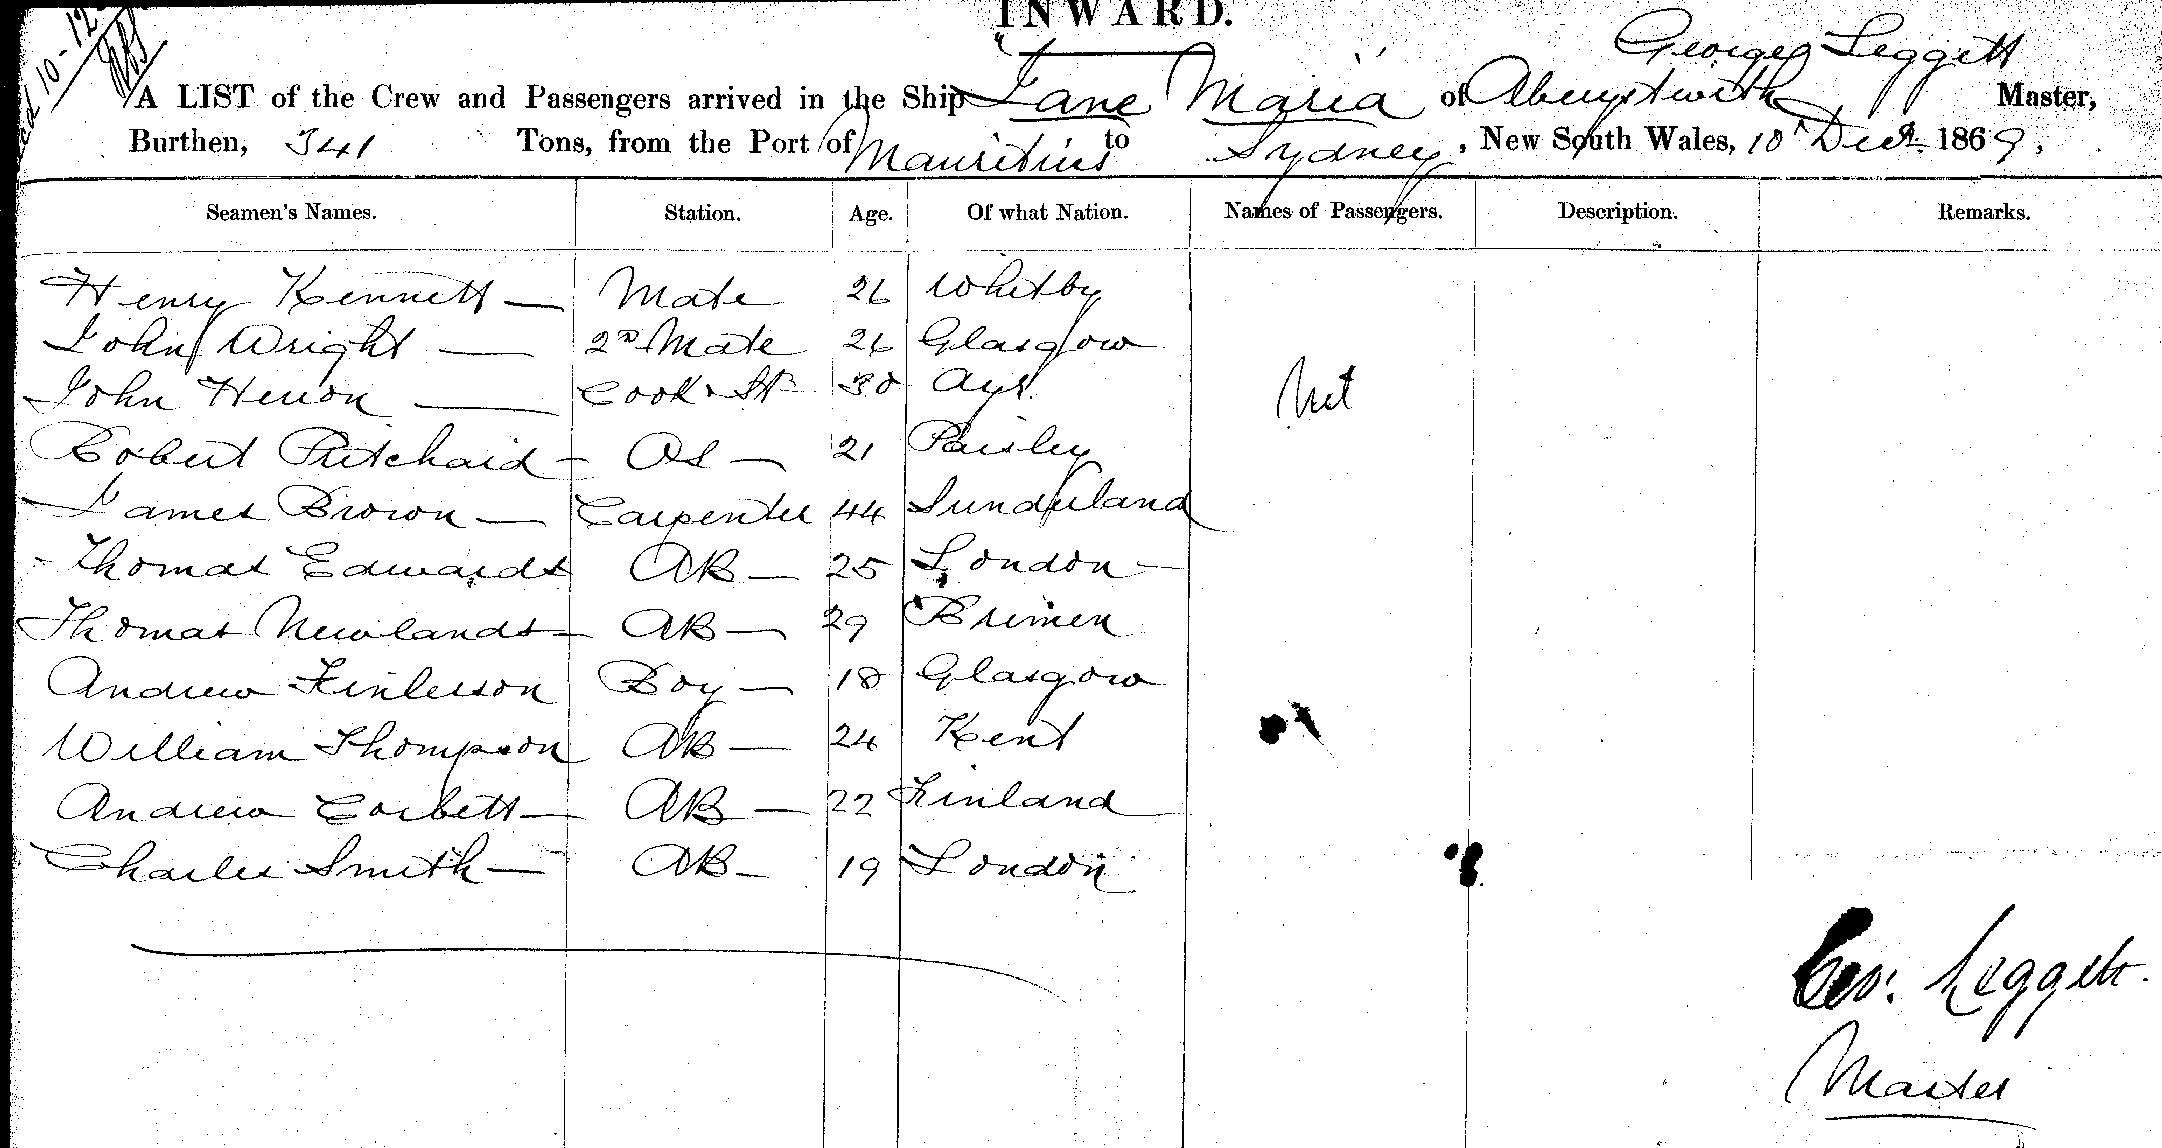 INWARD.
George Leggett
A LIST of the Crew and Passengers arrived in the Ship Jane Maria of Aberystwith Master,
Burthen, 341 Tons, from the Port of Mauritius to Sydney, New South Wales, 10th Decr. 1869,
Seamen's Names. Station. Age. Of what Nation. Names of Passengers. Description. Remarks.
Henry Kennett — Mate 26 Whitby
John Wright — 2nd Mate 26 Glasgow
John Heron — Cook & St 30 Ayr.
Robert Pritchard — OS — 21 Paisley
James Brown — Carpenter 44 Sunderland
Thomas Edwards AB — 25 London —
Thomas Newlands — AB — 29 Bremen
Andrew Finlerson Boy — 18 Glasgow
William Thompson AB — 24 Kent
Andrew Corbett — AB — 22 Finland
Charles Smith — AB — 19 London
Geo: Leggett.
Master